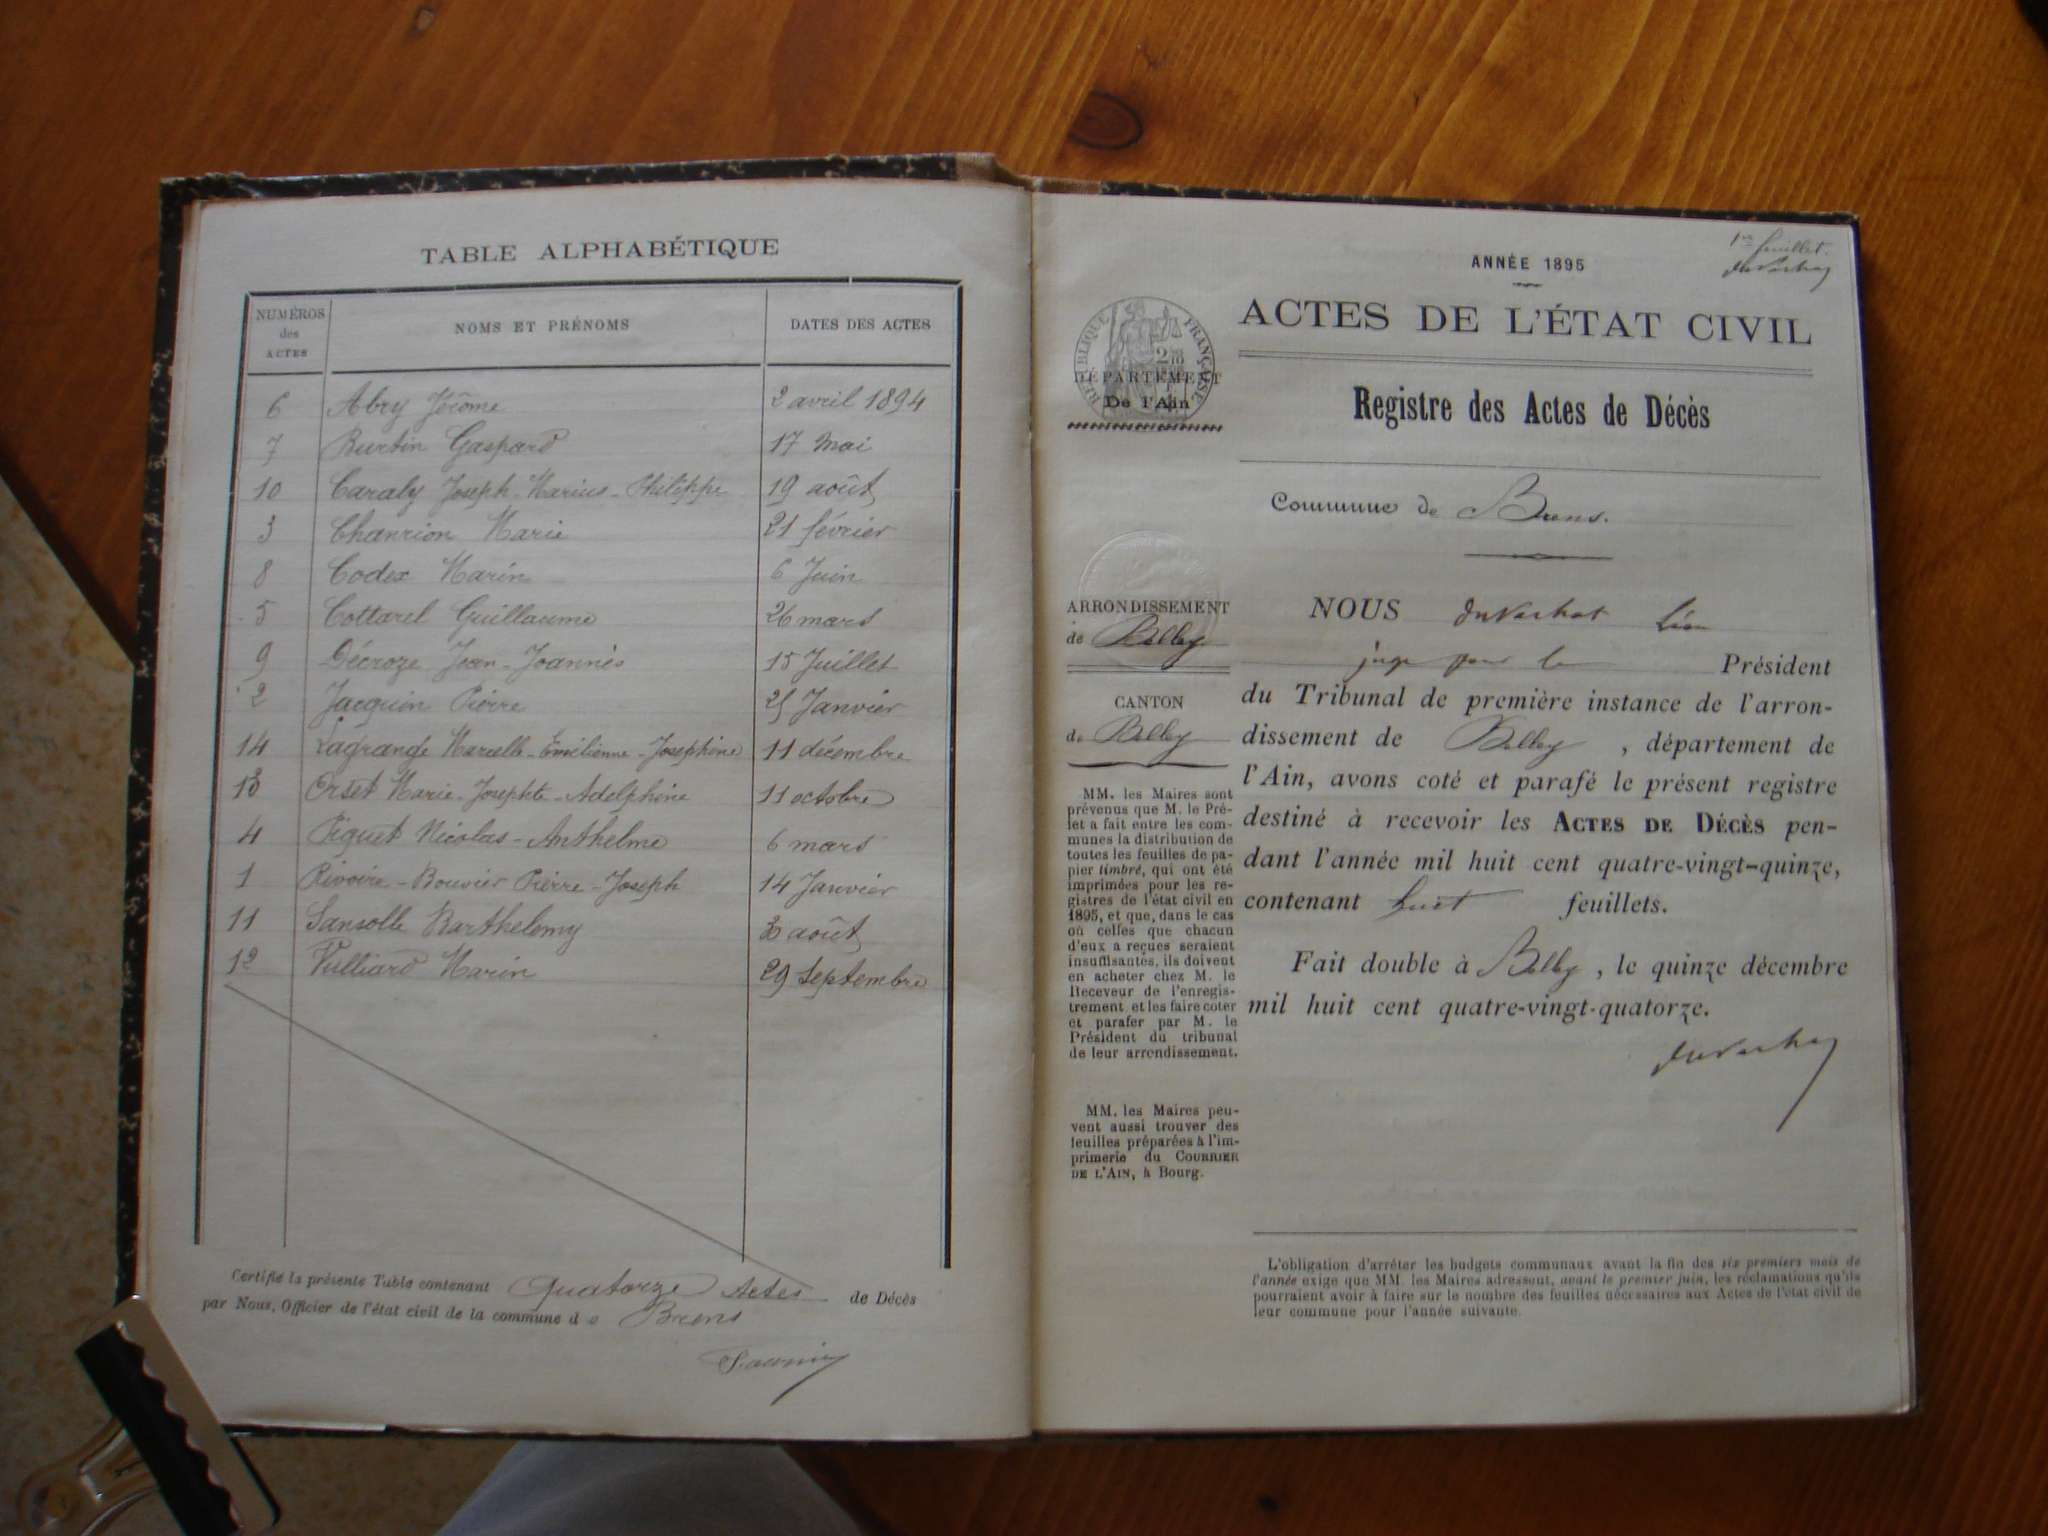 TABLE ALPHABÉTIQUE
NUMÉROS des ACTES NOMS ET PRÉNOMS DATES DES ACTES
6 Abry Jérôme 2 avril 1894
7 Burtin Gaspard 17 mai
10 Caraly Joseph-Marius-Philippe 19 août
3 Chanrion Marie 21 février
8 Codex Marin 6 Juin
5 Cottarel Guillaume 26 mars
9 Décroze Jean-Joannès 15 Juillet
2 Jacquin Pierre 25 Janvier
14 Lagrange Marcelle-Emélienne-Joséphine 11 décembre
13 Orset Marie-Josephte-Adelphine 11 octobre
4 Piquet Nicolas-Anthelme 6 mars
1 Rivoire-Bouvier Pierre-Joseph 14 Janvier
11 Sansolle Barthelemy 30 août
12 Vulliard Marin 29 Septembre
Certifié la présente Table contenant Quatorze Actes de Décès
par Nous, Officier de l'état civil de la commune de Brens
1er feuillet.
Duvachat
ANNÉE 1895
ACTES DE L'ÉTAT CIVIL
RÉPUBLIQUE FRANÇAISE
DÉPARTEMENT
De l'Ain
Registre des Actes de Décès
Commune de Brens.
ARRONDISSEMENT
de Belley
CANTON
de Belley
MM. les Maires sont
prévenus que M. le Pré-
fet a fait entre les com-
munes la distribution de
toutes les feuilles de pa-
pier timbré, qui ont été
imprimées pour les re-
gistres de l'état civil en
1895, et que, dans le cas
où celles que chacun
d'eux a reçues seraient
insuffisantes, ils doivent
en acheter chez M. le
Receveur de l'enregis-
trement et les faire coter
et parafer par M. le
Président du tribunal
de leur arrondissement.
MM. les Maires peu-
vent aussi trouver des
feuilles préparées à l'im-
primerie du COURRIER
DE L'AIN, à Bourg.
NOUS Duvachat Léon
juge pour le Président
du Tribunal de première instance de l'arron-
dissement de Belley, département de
l'Ain, avons coté et parafé le présent registre
destiné à recevoir les ACTES DE DÉCÈS pen-
dant l'année mil huit cent quatre-vingt-quinze,
contenant huit feuillets.
Fait double à Belley, le quinze décembre
mil huit cent quatre-vingt-quatorze.
Duvachat
L'obligation d'arrêter les budgets communaux avant la fin des six premiers mois de
l'année exige que MM. les Maires adressent, avant le premier juin, les réclamations qu'ils
pourraient avoir à faire sur le nombre des feuilles nécessaires aux Actes de l'état civil de
leur commune pour l'année suivante.